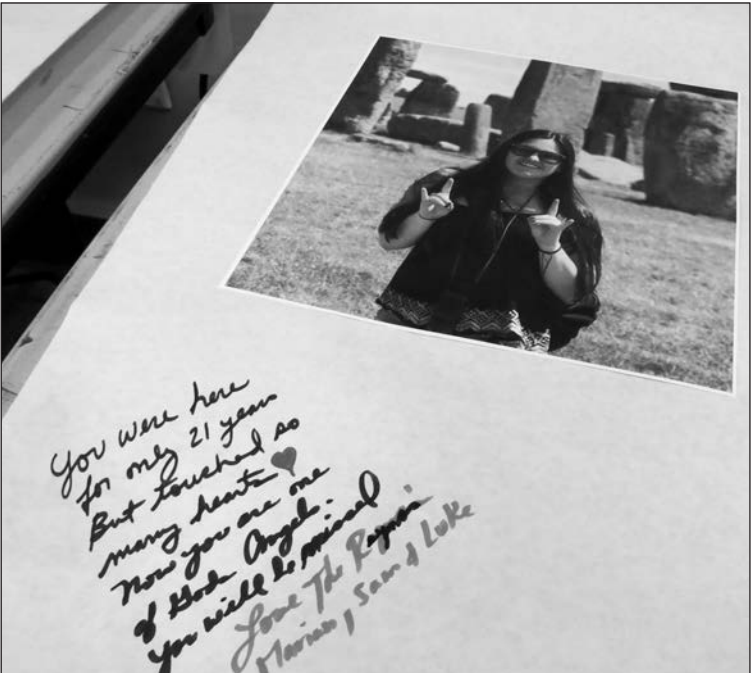 You were here
for only 21 years
But touched so
many hearts
Now you are one
of Gods Angels.
You will be missed
Love The
Sam & Luke